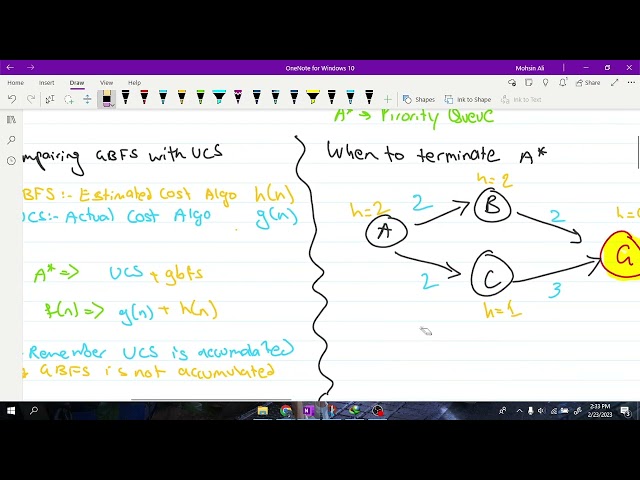 OneNote for Windows 10
Mohsin Ali
File Home Insert Draw View Help
Share
Shapes Ink to Shape Ink to Text
A* → Priority Queue
mparing GBFS with UCS
BFS:- Estimated Cost Algo h(n)
UCS:- Actual Cost Algo g(n)
A* => UCS + gbfs
f(n) => g(n) + h(n)
Remember UCS is accumalated
GBFS is not accumulated
When to terminate A*
h=2
2 B 2
h=2
A G
2 C 3
h=1
2:33 PM
2/23/2023